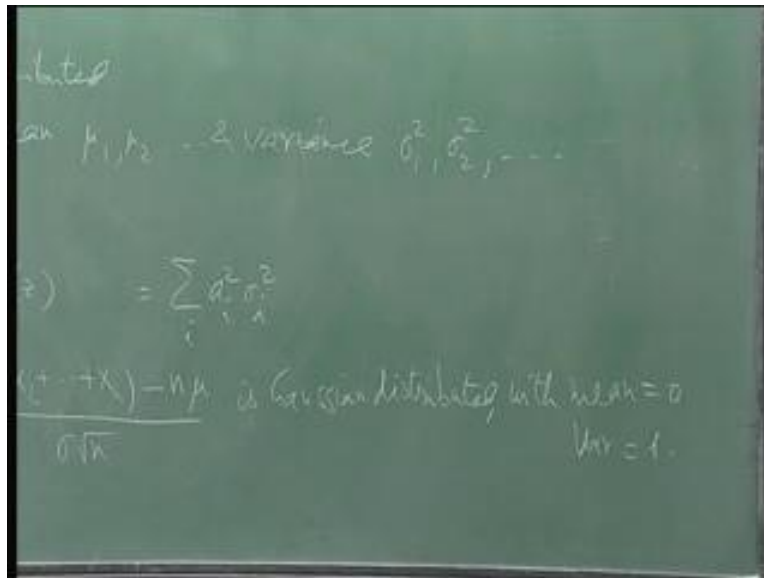 ibuted
ean μ₁, μ₂ -- & variance σ₁², σ₂², ----
z) = ∑ᵢ aᵢ² σᵢ²
(+ -- + X ) - nμ is Gaussian distributed, with mean = 0
σ√n Var = 1.